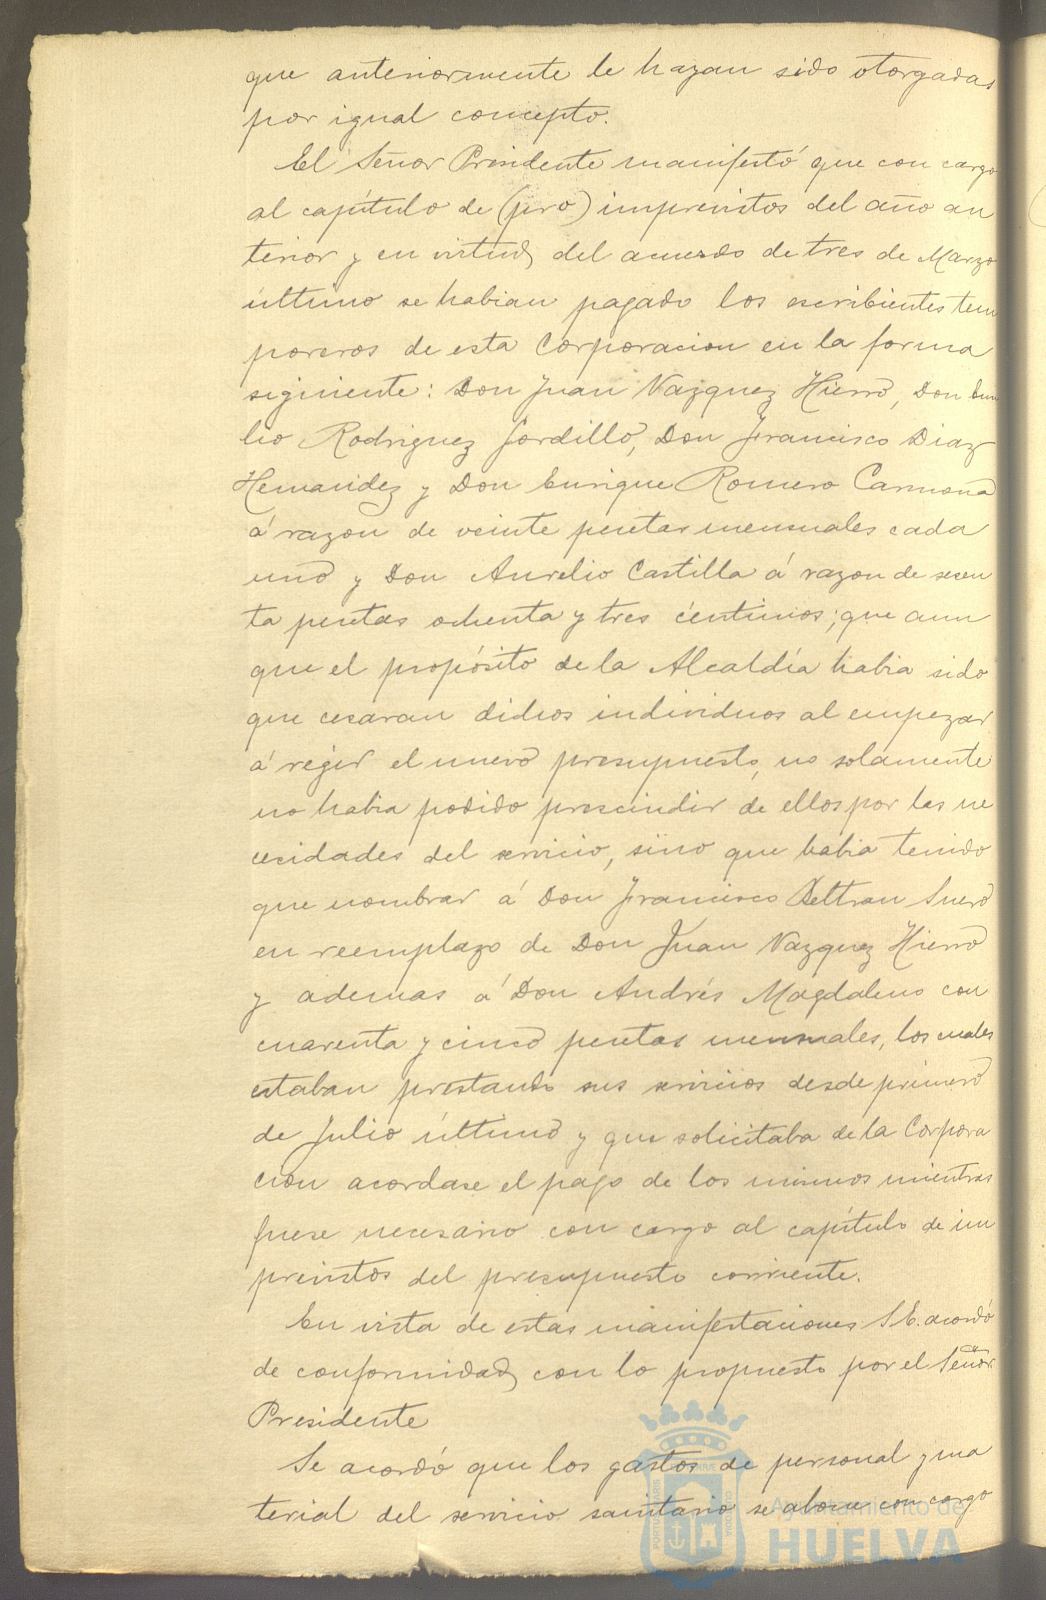 que anteriormente le hayan sido otorgadas
por igual concepto.
El Señor Presidente manifestó que con cargo
al capítulo de (pro) imprevistos del año an
terior y en virtud del acuerdo de tres de Marzo
último se habian pagado los escribientes tem
poreros de esta Corporacion en la forma
siguiente: Don Juan Vazquez Hierro, Don Emi
lio Rodriguez Gordillo, Don Francisco Diaz
Hernandez y Don Enrique Romero Carmona
á razon de veinte pesetas mensuales cada
uno y Don Aurelio Castilla á razon de sesen
ta pesetas ochenta y tres céntimos; que aun
que el propósito de la Alcaldía habia sido
que cesaran dichos individuos al empezar
á regir el nuevo presupuesto, no solamente
no habia podido prescindir de ellos por las ne
cesidades del servicio, sino que habia tenido
que nombrar á Don Francisco Beltran Suero
en reemplazo de Don Juan Vazquez Hierro
y ademas á Don Andrés Magdaleno con
cuarenta y cinco pesetas mensuales, los cuales
estaban prestando sus servicios desde primero
de Julio último y que solicitaba de la Corpora
cion acordase el pago de los mismos mientras
fuese necesario con cargo al capítulo de im
previstos del presupuesto corriente.
En vista de estas manifestaciones S.E. acordó
de conformidad con lo propuesto por el Señor
Presidente
Se acordó que los gastos de personal y ma
terial del servicio sanitario se abone con cargo
Ayuntamiento de
HUELVA